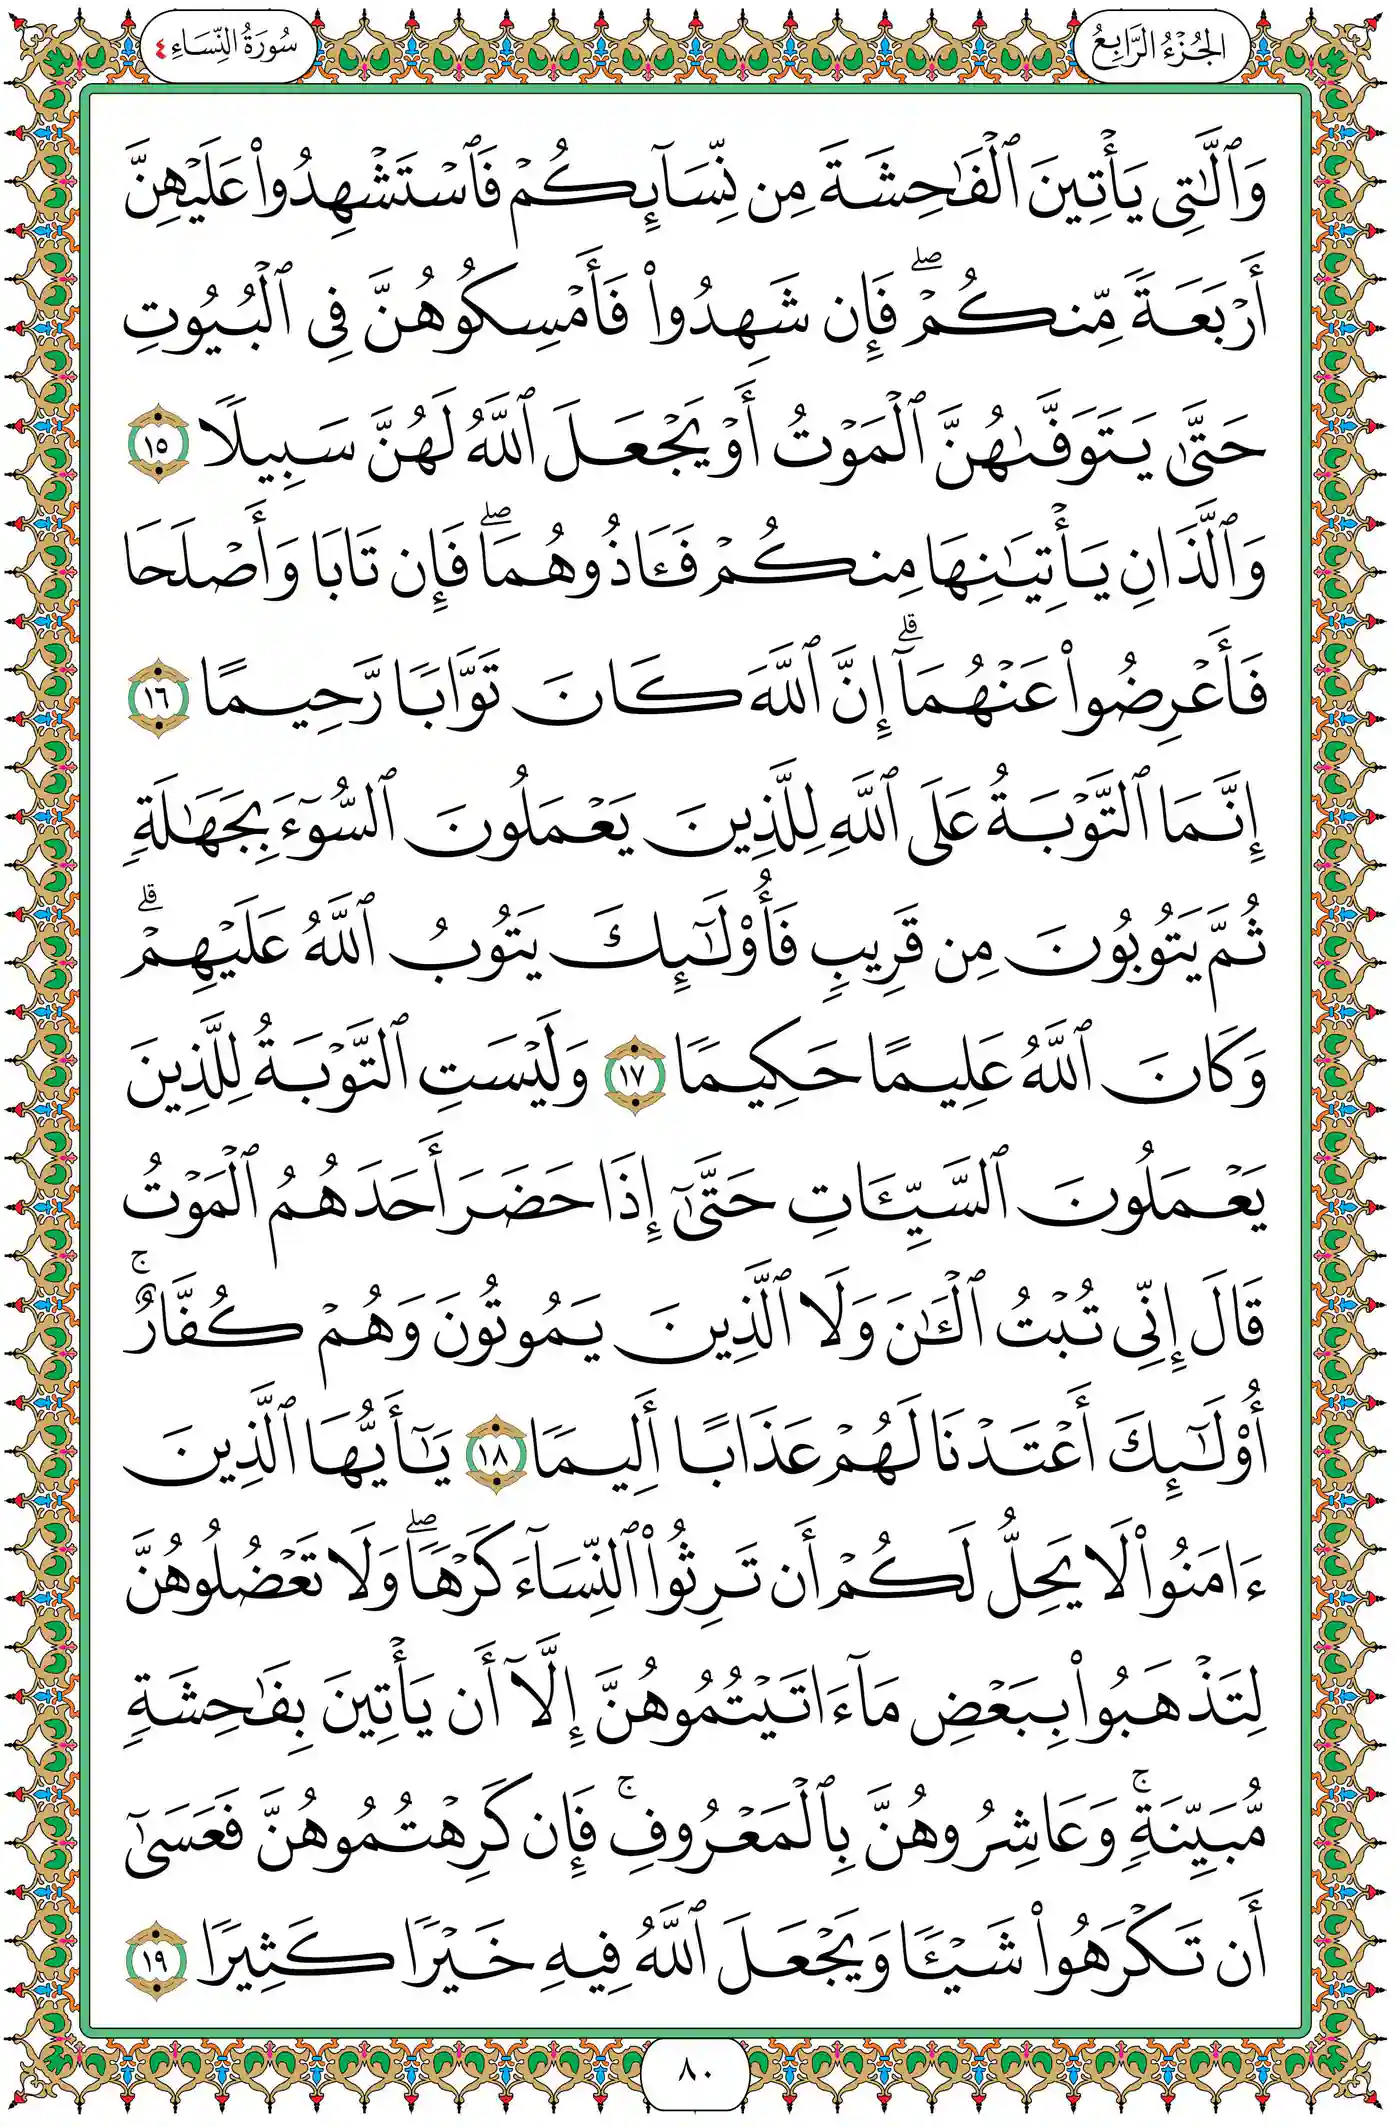 الجُزْءُ الرَّابِعُ
سُورَةُ النِّسَاءِ ٤
وَٱلَّٰتِى يَأْتِينَ ٱلْفَٰحِشَةَ مِن نِّسَآئِكُمْ فَٱسْتَشْهِدُوا۟ عَلَيْهِنَّ
أَرْبَعَةً مِّنكُمْ ۖ فَإِن شَهِدُوا۟ فَأَمْسِكُوهُنَّ فِى ٱلْبُيُوتِ
حَتَّىٰ يَتَوَفَّىٰهُنَّ ٱلْمَوْتُ أَوْ يَجْعَلَ ٱللَّهُ لَهُنَّ سَبِيلًا ١٥
وَٱلَّذَانِ يَأْتِيَٰنِهَا مِنكُمْ فَـَٔاذُوهُمَا ۖ فَإِن تَابَا وَأَصْلَحَا
فَأَعْرِضُوا۟ عَنْهُمَآ ۗ إِنَّ ٱللَّهَ كَانَ تَوَّابًا رَّحِيمًا ١٦
إِنَّمَا ٱلتَّوْبَةُ عَلَى ٱللَّهِ لِلَّذِينَ يَعْمَلُونَ ٱلسُّوٓءَ بِجَهَٰلَةٍ
ثُمَّ يَتُوبُونَ مِن قَرِيبٍ فَأُو۟لَٰٓئِكَ يَتُوبُ ٱللَّهُ عَلَيْهِمْ ۗ
وَكَانَ ٱللَّهُ عَلِيمًا حَكِيمًا ١٧ وَلَيْسَتِ ٱلتَّوْبَةُ لِلَّذِينَ
يَعْمَلُونَ ٱلسَّيِّـَٔاتِ حَتَّىٰٓ إِذَا حَضَرَ أَحَدَهُمُ ٱلْمَوْتُ
قَالَ إِنِّى تُبْتُ ٱلْـَٰٔنَ وَلَا ٱلَّذِينَ يَمُوتُونَ وَهُمْ كُفَّارٌ ۚ
أُو۟لَٰٓئِكَ أَعْتَدْنَا لَهُمْ عَذَابًا أَلِيمًا ١٨ يَٰٓأَيُّهَا ٱلَّذِينَ
ءَامَنُوا۟ لَا يَحِلُّ لَكُمْ أَن تَرِثُوا۟ ٱلنِّسَآءَ كَرْهًا ۖ وَلَا تَعْضُلُوهُنَّ
لِتَذْهَبُوا۟ بِبَعْضِ مَآ ءَاتَيْتُمُوهُنَّ إِلَّآ أَن يَأْتِينَ بِفَٰحِشَةٍ
مُّبَيِّنَةٍ ۚ وَعَاشِرُوهُنَّ بِٱلْمَعْرُوفِ ۚ فَإِن كَرِهْتُمُوهُنَّ فَعَسَىٰٓ
أَن تَكْرَهُوا۟ شَيْـًٔا وَيَجْعَلَ ٱللَّهُ فِيهِ خَيْرًا كَثِيرًا ١٩
٨٠